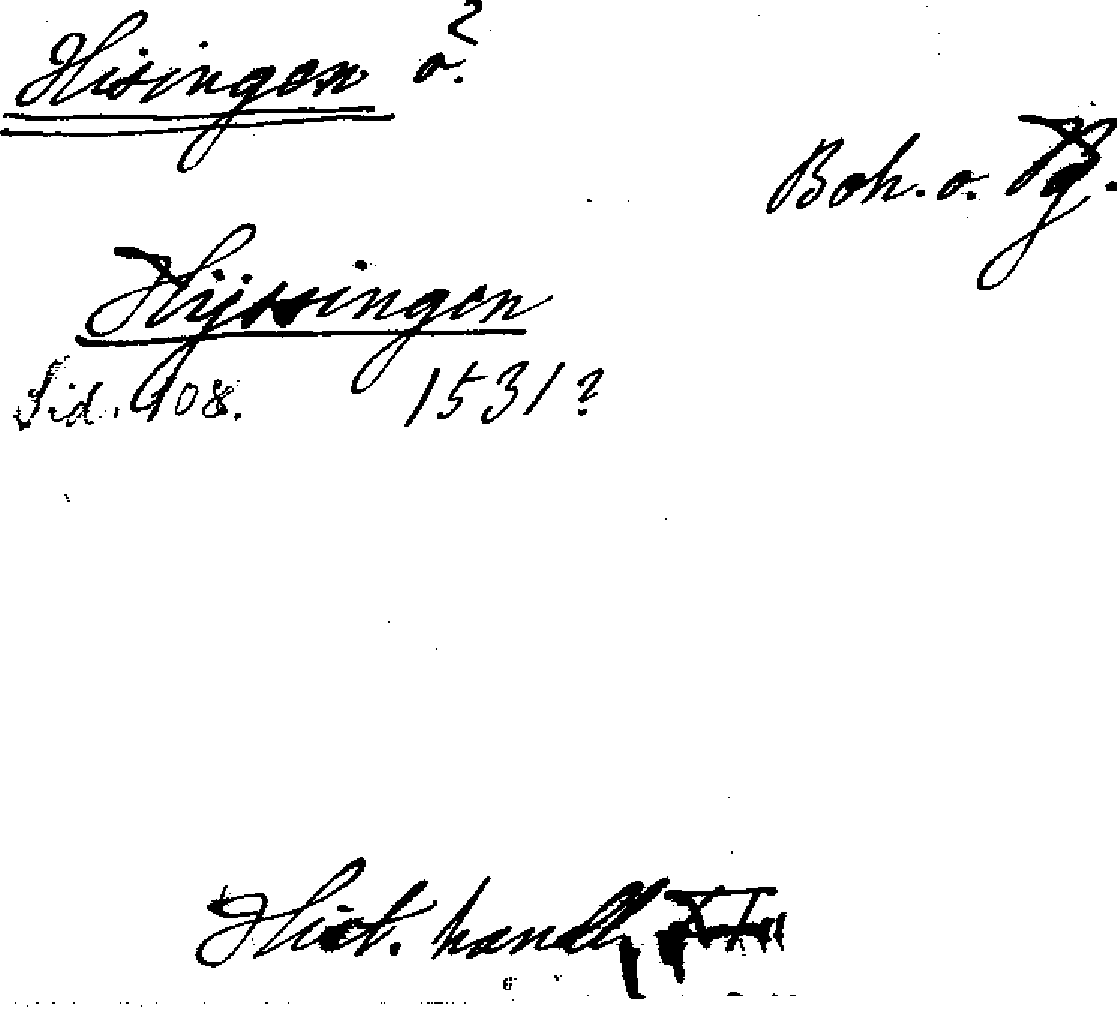 Hisingen ö?
Boh. o. Vg.
Hijssingen
Sid. 908. 1531?
Hist. handl.